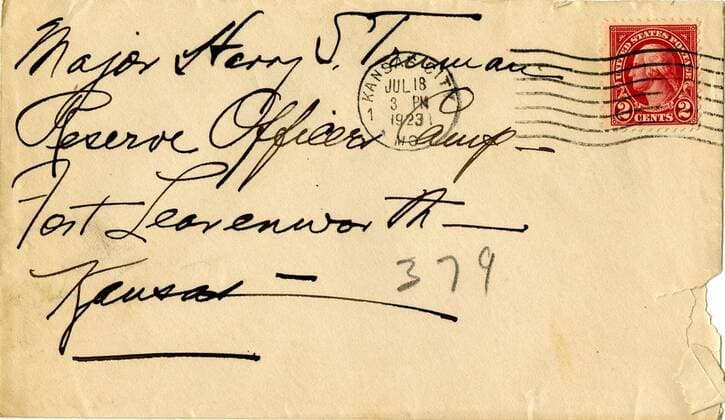 Major Harry S. Truman
Reserve Officers Camp —
Fort Leavenworth —
Kansas —
379
KANSAS CITY
JUL 18
3 PM
1923
MO.
1
1
UNITED STATES POSTAGE
2 CENTS 2